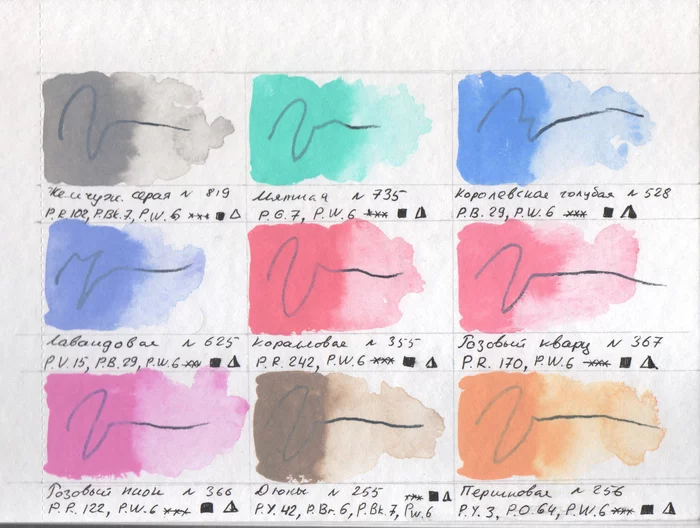 Жемчужн. серая № 819
P.R.102, P.Bk.7, P.W.6 ***
Мятная № 735
P.G.7, P.W.6 ***
Королевская голубая № 528
P.B.29, P.W.6 ***
Лавандовая № 625
P.V.15, P.B.29, P.W.6 **
Коралловая № 355
P.R.242, P.W.6 ***
Розовый кварц № 367
P.R.170, P.W.6 ***
Розовый пион № 366
P.R.122, P.W.6 ***
Дюны № 255
P.Y.42, P.Br.6, P.Bk.7, P.W.6 ***
Персиковая № 256
P.Y.3, P.O.64, P.W.6 ***